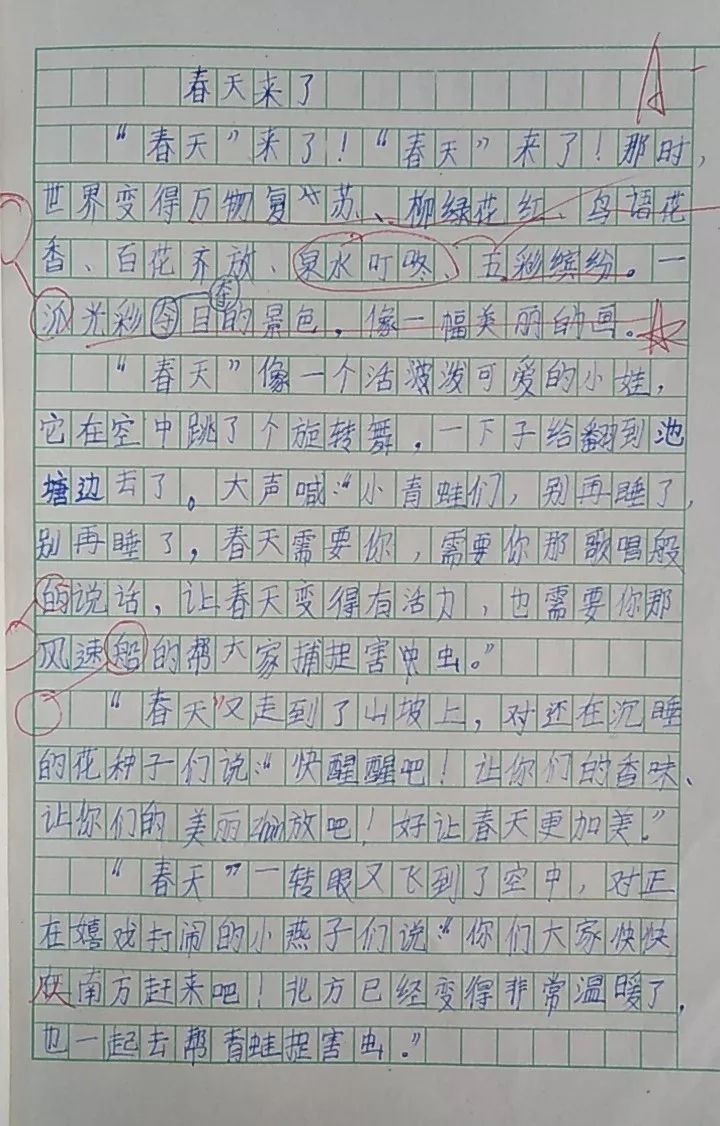 A-
春天来了
“春天”来了！“春天”来了！那时，
世界变得万物复苏、柳绿花红、鸟语花
香、百花齐放、泉水叮咚、五彩缤纷。一
派光彩夺目的景色，像一幅美丽的画。
“春天”像一个活波泼可爱的小娃，
它在空中跳了个旋转舞，一下子给翻到池
塘边去了。大声喊：“小青蛙们，别再睡了，
别再睡了，春天需要你，需要你那歌唱般
的说话，让春天变得有活力，也需要你那
风速船的帮大家捕捉害虫。”
“春天”又走到了山坡上，对还在沉睡
的花种子们说：“快醒醒吧！让你们的香味、
让你们的美丽放吧！好让春天更加美。”
“春天”一转眼又飞到了空中，对正
在嬉戏打闹的小燕子们说：“你们大家快快
南方赶来吧！北方已经变得非常温暖了，
也一起去帮青蛙捉害虫。”